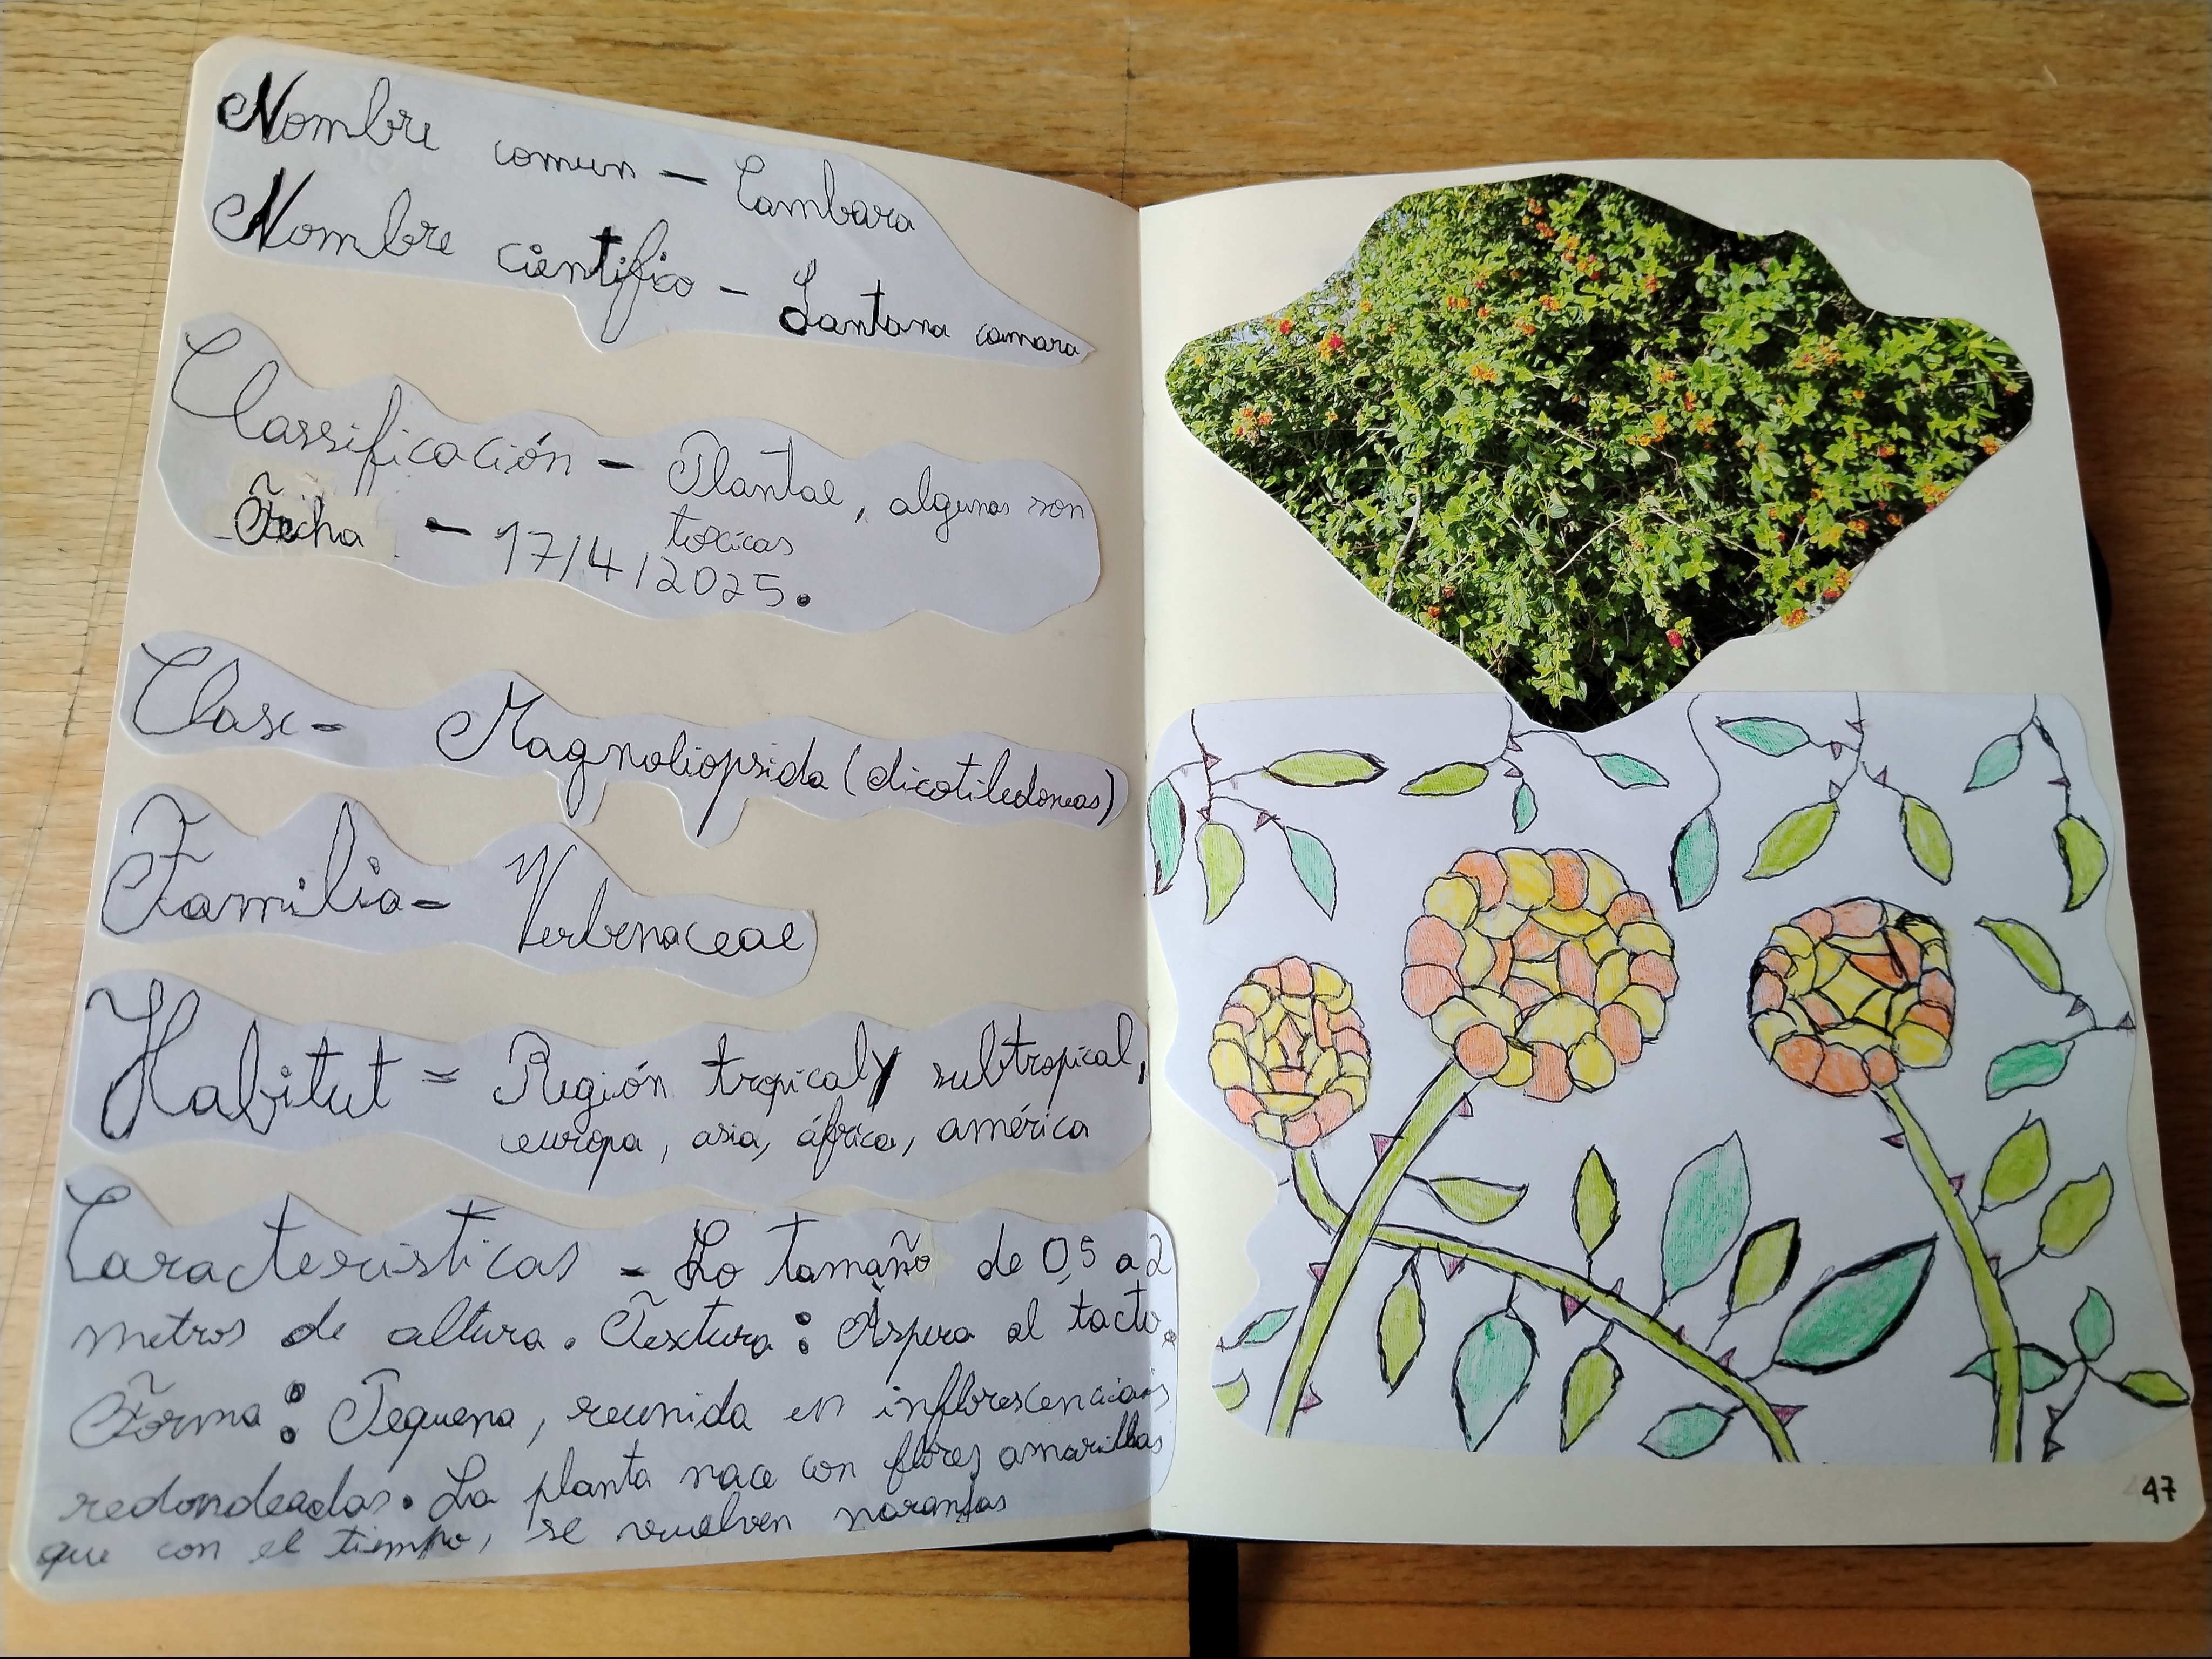 Nombre comun - Cambara
Nombre cientifico - Lantana camara
Classificación - Plantae, algunas son
toxicas
Fecha - 17/4/2025.
Clase - Magnoliopsida (dicotiledoneas)
Familia - Verbenaceae
Habitut = Región tropical y subtropical,
europa, asia, áfrica, américa
Caracteristicas - Lo tamaño de 0,5 a 2
metros de altura. Textura: Àspera al tacto.
Forma: Pequena, reunida en inflorescenciais
redondeadas. La planta nace con flores amarillas
que con el tiempo, se vuelven naranjas
47